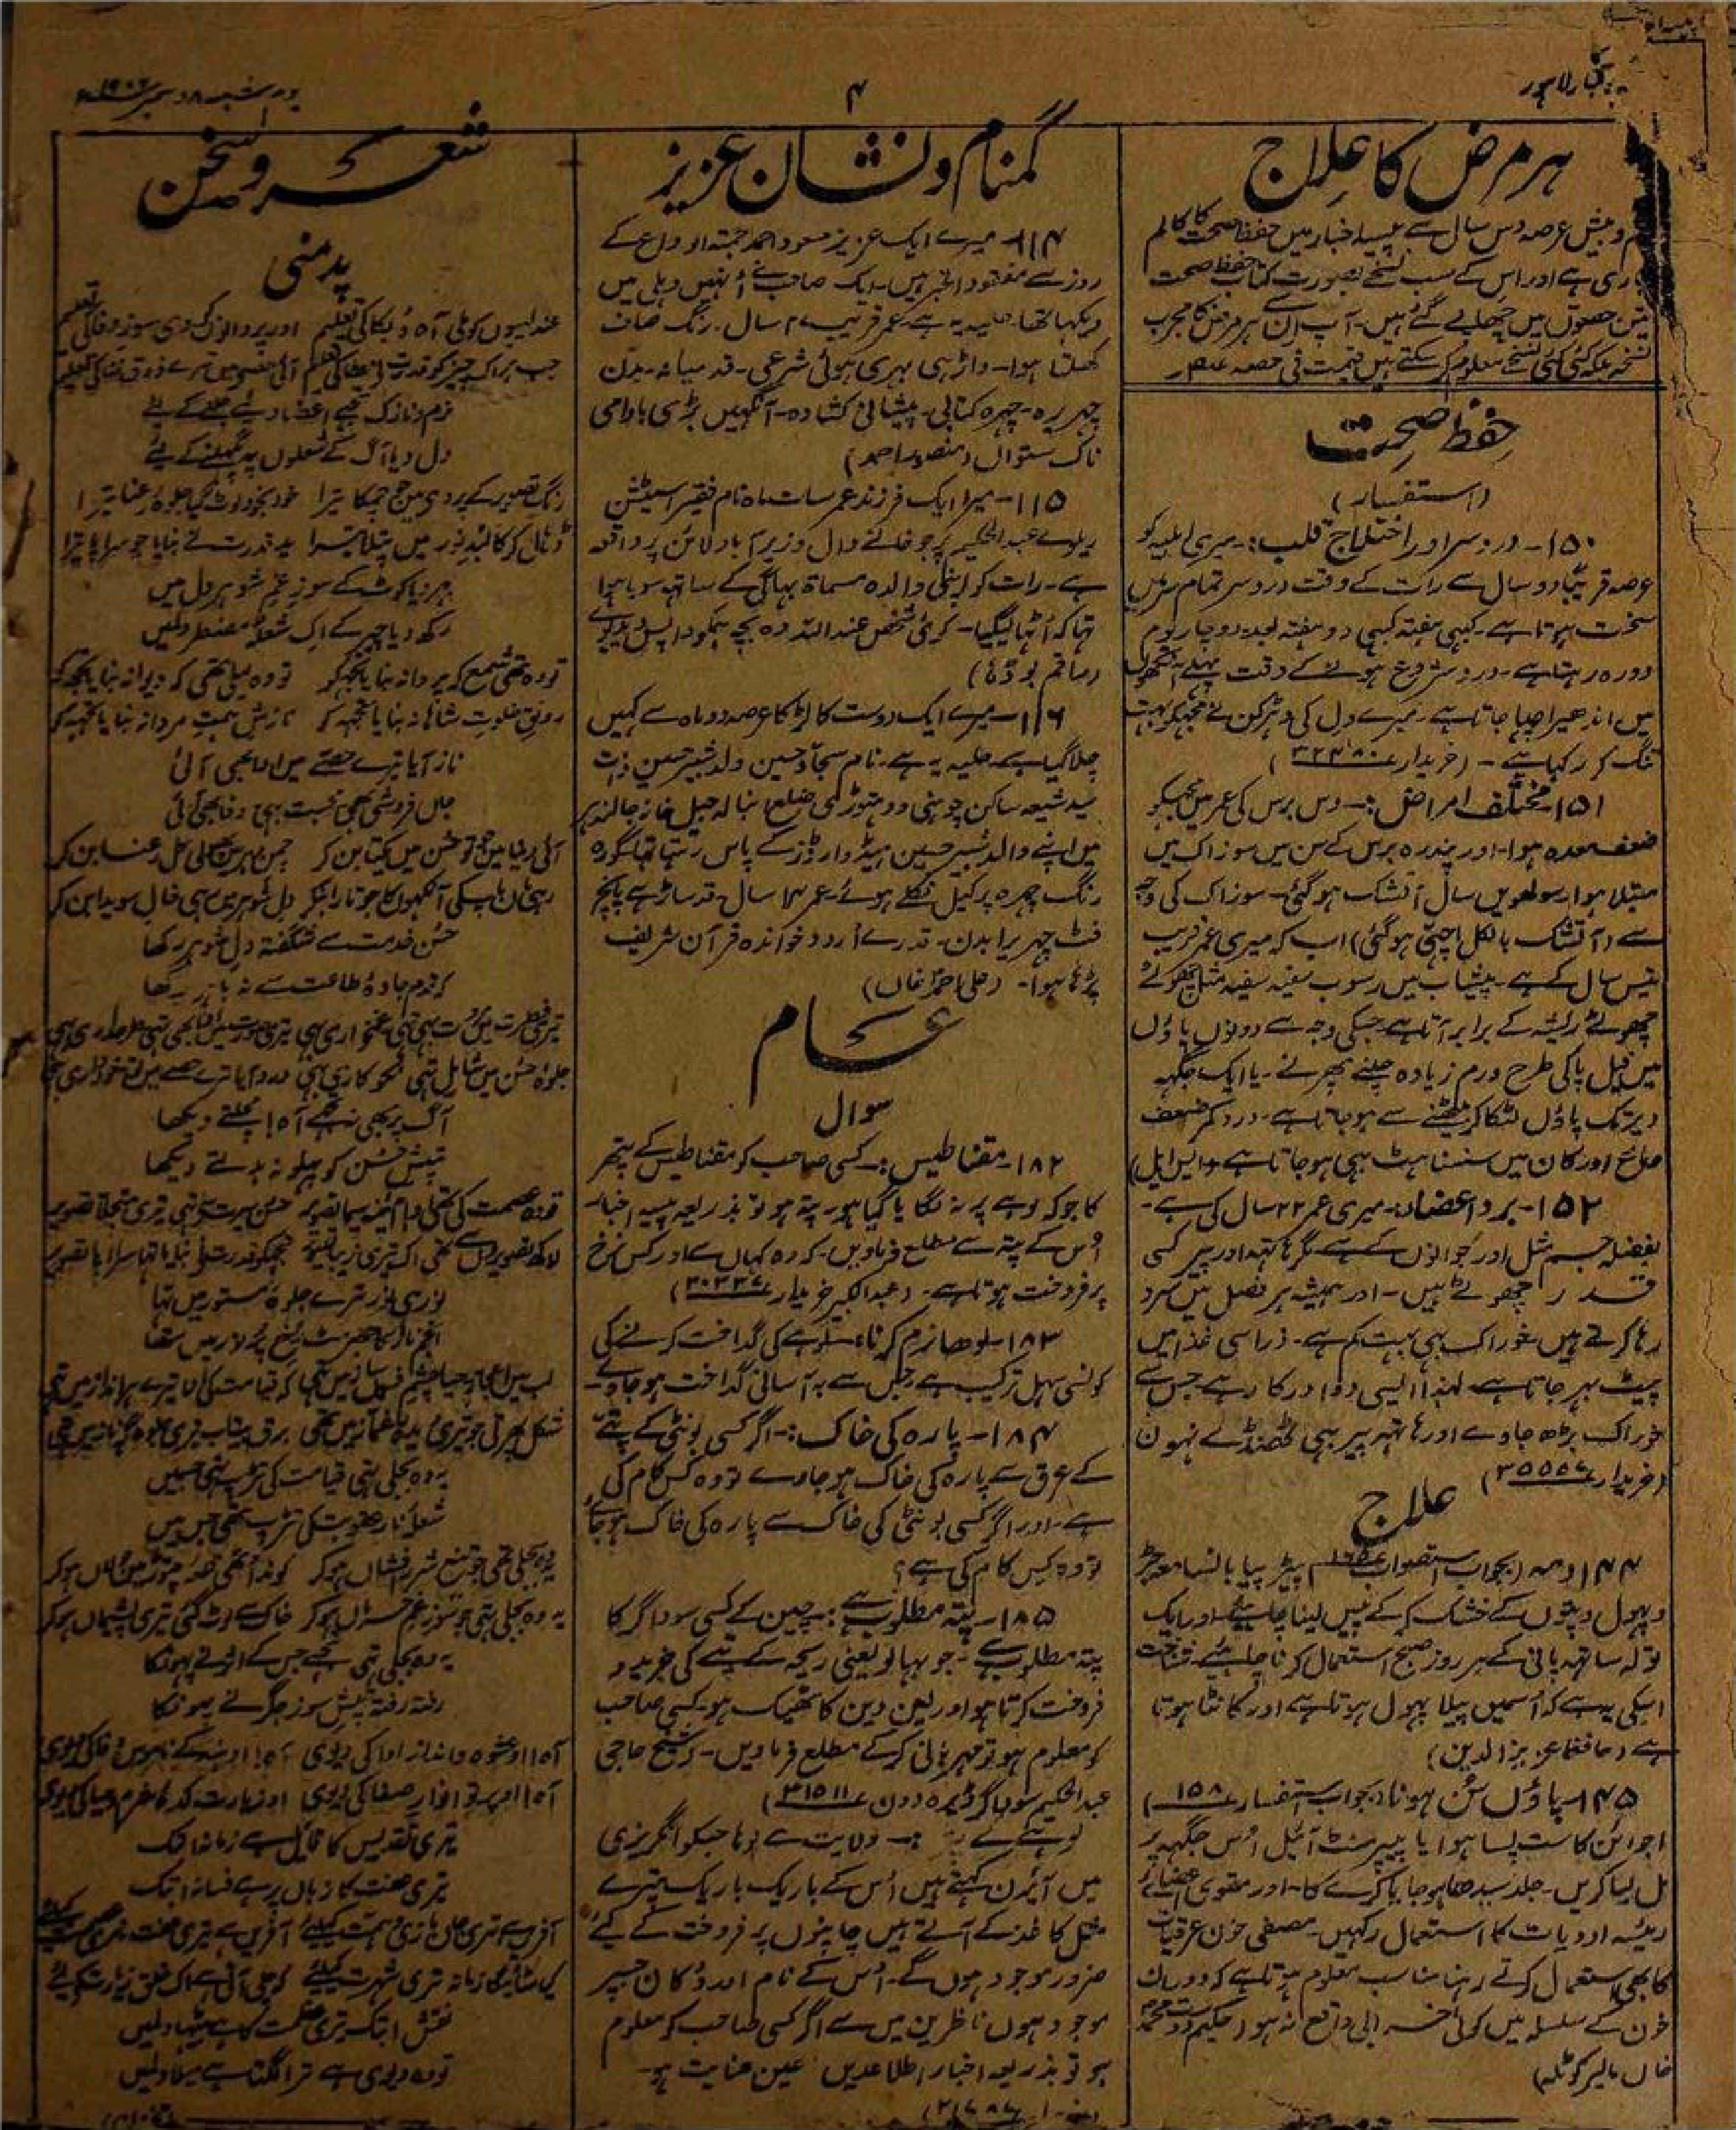 پیسہ
اخبار لاہور
۴
ہر مرض کا علاج
و بیش عرصہ دس سال سے پیسہ اخبار میں حفظ صحت کا کالم
جاری ہے اور اس کے سب نسخے بصورت کتاب حفظ صحت
تین حصوں میں چھاپے گئے ہیں۔ آپ ان سے ہر مرض کا مجرب
نسخہ بلکہ کئی کئی نسخے معلوم کر سکتے ہیں قیمت فی حصہ
حفظ صحت
(استفسار)
۱۵۰۔ درد سر اور اختلاج قلب:۔ میری اہلیہ کو
عرصہ قریباً دو سال سے رات کے وقت درد سر تمام سر میں
سخت ہوتا ہے۔ کبھی ہفتہ کبھی دو ہفتہ بعد دو چار یوم
دورہ رہتا ہے۔ درد شروع ہونے کے وقت پہلے آنکھوں
میں اندھیرا چھا جاتا ہے۔ میرے دل کی دھڑکن نے مجھکو بہت
تنگ کر رکھا ہے۔ (خریدار ۳۲۴۸۰)
۱۵۱۔ مختلف امراض:۔ دس برس کی عمر میں مجکو
ضعف معدہ ہوا۔ اور پندرہ برس کے سن میں سوزاک میں
مبتلا ہوا۔ سولھویں سال آتشک ہو گئی۔ سوزاک کی وجہ
سے (آتشک بالکل اچھی ہو گئی) اب کہ میری عمر قریب
تیس سال کے ہے۔ پیشاب میں رسوب سفید سفید مثل چھوٹے
چھوٹے ریشہ کے برابر آتا ہے جسکی وجہ سے دونوں پاؤں
میں فیل پا کی طرح ورم زیادہ چلنے پھرنے۔ یا ایک جگہہ
دیر تک پاؤں لٹکا کر بیٹھنے سے ہو جاتا ہے۔ درد کمر ضعف
دماغ اور کان میں سنسناہٹ بھی ہو جاتا ہے (ایس ایل)
۱۵۲۔ برد اعضا:۔ میری عمر ۲۲ سال کی ہے۔
بفضلہ جسم مثل اور جوانوں کے ہے مگر ہاتھ اور پیر کسی
قدر چھوٹے ہیں۔ اور ہمیشہ ہر فصل میں سرد
رہا کرتے ہیں خوراک بھی بہت کم ہے۔ ذرا سی غذا میں
پیٹ بھر جاتا ہے۔ لہذا ایسی دوا درکار ہے جس سے
خوراک بڑھ جاوے اور ہاتھ پیر بھی ٹھنڈے نہوں
(خریدار ۳۵۵۵۷)
علاج
۱۴۴۔ دمہ (بجواب استصواب
و پھول و پتوں کے خشک کر کے پیس لینا چاہئے اور ایک
تولہ ساتھ پانی کے ہر روز صبح استعمال کرنا چاہئے۔ شناخت
اسکی یہ ہے کہ اسمیں پیلا پھول ہوتا ہے اور کانٹا ہوتا
ہے (حافظ عزیز الدین)
۱۴۵۔ پاؤں سُن ہونا (بجواب استفسار ۱۵۸)
اجوائن کا ست پسا ہوا یا پیپرمنٹ آئل اُس جگہہ پر
مل لیا کریں۔ جلد سیدھا ہو جایا کرے گا۔ اور مقوی اعضائے
رئیسہ ادویات کا استعمال رکھیں۔ مصفی خون عرقیات
کا بھی استعمال کرتے رہنا مناسب معلوم ہوتا ہے کہ دوران
خون کے سلسلہ میں کوئی خرابی واقع نہ ہو (حکیم
خاں مالیر کوٹلہ)
گمنام و نشان عزیز
۱۱۴۔ میرے ایک عزیز مسعود احمد
روز سے مفقود الخبر ہیں۔ ایک صاحب نے اُنہیں دہلی میں
دیکھا تھا۔ حلیہ یہ ہے۔ عمر قریب ۲۰ سال۔ رنگ صاف
کھلتا ہوا۔ داڑھی بھری ہوئی شرعی۔ قد میانہ۔ بدن
چھریرہ۔ چہرہ کتابی۔ پیشانی کشادہ۔ آنکھیں بڑی بادامی
ناک ستواں (منصور احمد)
۱۱۵۔ میرا ایک فرزند عمر سات ماہ نام فقیر اسٹیشن
ریلوے عبدالحکیم پر جو خانے وال وزیر آباد لائن پر واقعہ
ہے۔ رات کو اپنی والدہ مسماۃ بھاگی کے ساتھ سویا ہوا
تھا کہ اُٹھا لیا گیا۔ کوئی شخص عند اللہ وہ بچہ ہمکو واپس دیدیوے
(راقم بوڈھا)
۱۱۶۔ میرے ایک دوست کا لڑکا عرصہ دو ماہ سے کہیں
چلا گیا ہے۔ حلیہ یہ ہے۔ نام سجاد حسین ولد شبیر حسین ذات
سید شیعہ ساکن چوہنی دو متوڑ کی ضلع انبالہ جیل خانہ جالندہر
میں اپنے والد شبیر حسین ہیڈ وارڈر کے پاس رہتا تھا۔ گورہ
رنگ چہرہ پر کیل نکلے ہوئے۔ عمر ۱۴ سال۔ قد ساڑھے پانچ
فٹ چھریرا بدن۔ قدرے اُردو خواندہ قرآن شریف
پڑھا ہوا۔ (علی احمد خاں)
عام
سوال
۱۸۲۔ مقناطیس:۔ کسی صاحب کو مقناطیس کے پتھر
کا جو کہ لوہے پر نہ لگایا گیا ہو۔ پتہ ہو تو بذریعہ پیسہ اخبار
اُس کے پتہ سے مطلع فرماویں۔ کہ وہ کہاں سے اور کس نرخ
پر فروخت ہوتا ہے۔ (عبدالکبیر خریدار
۱۸۳۔ لوہا نرم کرنا:۔ لوہے کی گداخت کرنے کی
کونسی سہل ترکیب ہے جس سے بہ آسانی گداخت ہو جاوے۔
۱۸۴۔ پارہ کی خاک:۔ اگر کسی بوٹی کے پتے
کے عرق سے پارہ کی خاک ہو جاوے تو وہ کس کام کی
ہے۔ اور اگر کسی بوٹی کی خاک سے پارہ کی خاک ہو جائے
تو وہ کس کام کی ہے؟
۱۸۵۔ پتہ مطلوب ہے:۔ چین کے کسی سوداگر کا
پتہ مطلوب ہے۔ جو بھالو یعنی ریچھ کے پتے کی خرید و
فروخت کرتا ہو اور لین دین کا ٹھیک ہو۔ کسی صاحب
کو معلوم ہو تو مہربانی کر کے مطلع فرماویں۔ (شیخ حاجی
عبدالحکیم سوداگر ڈیرہ دون ۳۱۵۱۱)
لوہے کے پتر:۔ ولایت سے لوہا جسکو انگریزی
میں آئرن کہتے ہیں اُس کے باریک باریک پترے
مثل کاغذ کے آتے ہیں چاہنوں پر فروخت کے لیے
ضرور موجود ہوں گے۔ اُس کے نام اور دوکان جسپر
موجود ہوں ناظرین میں سے اگر کسی صاحب کو معلوم
ہو تو بذریعہ اخبار اطلاع دیں عین عنایت ہو۔
شعر و سخن
پدمنی
عندلیبوں کو ملی آہ و بکا کی تعلیم اور پروانوں کو دی سوز وفا کی تعلیم
جب ہر اک چیز کو قدرت نے عطا کی تعلیم آئی حصے میں ترے ذوق فنا کی تعلیم
نرم و نازک تجھے اعضا دیئے جلنے کے لئے
دل دیا آگ کے شعلوں پہ پگھلنے کے لئے
رنگ تصویر کے پردے میں جو چمکا تیرا خود بخود لوٹ گیا جلوۂ رعنا تیرا
ڈھال کر کالبد نور میں پتلا تیرا ید قدرت نے بنایا جو سراپا تیرا
بھر دیا کوٹ کے سوز غم شوہر دل میں
رکھ دیا چیر کے اک شعلۂ مضطر دل میں
تو وہ تھی شمع کہ پروانہ بنایا تجھکو تو وہ لیلی تھی کہ دیوانہ بنایا تجھکو
رونق خلوت شاہانہ بنایا تجھکو نازش ہمت مردانہ بنایا تجھکو
ناز آیا ترے حصے میں ادا بھی آئی
جاں فروشی بھی محبت بھی وفا بھی آئی
آئی دنیا میں جو تو حسن میں یکتا بن کر چمن دہر میں پھولی گل رعنا بن کر
رہی ماں باپ کی آنکھوں کا جو تارا بنکر دل شوہر میں رہی خال سویدا بن کر
حسن خدمت سے شگفتہ دل شوہر رکھا
کہ قدم جادۂ طاعت سے نہ باہر رکھا
آگ پر بھی نہ تجھے آہ! مچلتے دیکھا
تپش حسن کو پہلو نہ بدلتے دیکھا
نوری نور ترے جلوۂ مستور میں تھا
یہ وہ بجلی تھی قیامت کی تڑپ تھی جس میں
شعلۂ نار عقوبت کی تڑپ تھی جس میں
یہ وہ بجلی تھی جو تیغ شرر افشاں ہو کر کوند اٹھی قلعہ چتوڑ میں جولاں ہو کر
یہ وہ بجلی تھی جو سوز غم حرماں ہو کر خاک سی لوٹ گئی تیری پشیماں ہو کر
یہ وہ بجلی تھی تجھے جس کے اثر نے پھونکا
رفتہ رفتہ تپش سوز جگر نے پھونکا
تیری تقدیس کا قائل ہے زمانہ اب تک
تیری عفت کا زباں پر ہے فسانہ اب تک
نقش ابتک تیری عظمت کا ہے بیٹھا دل میں
تو وہ دیوی ہے ترا لگتا ہے میلا دل میں